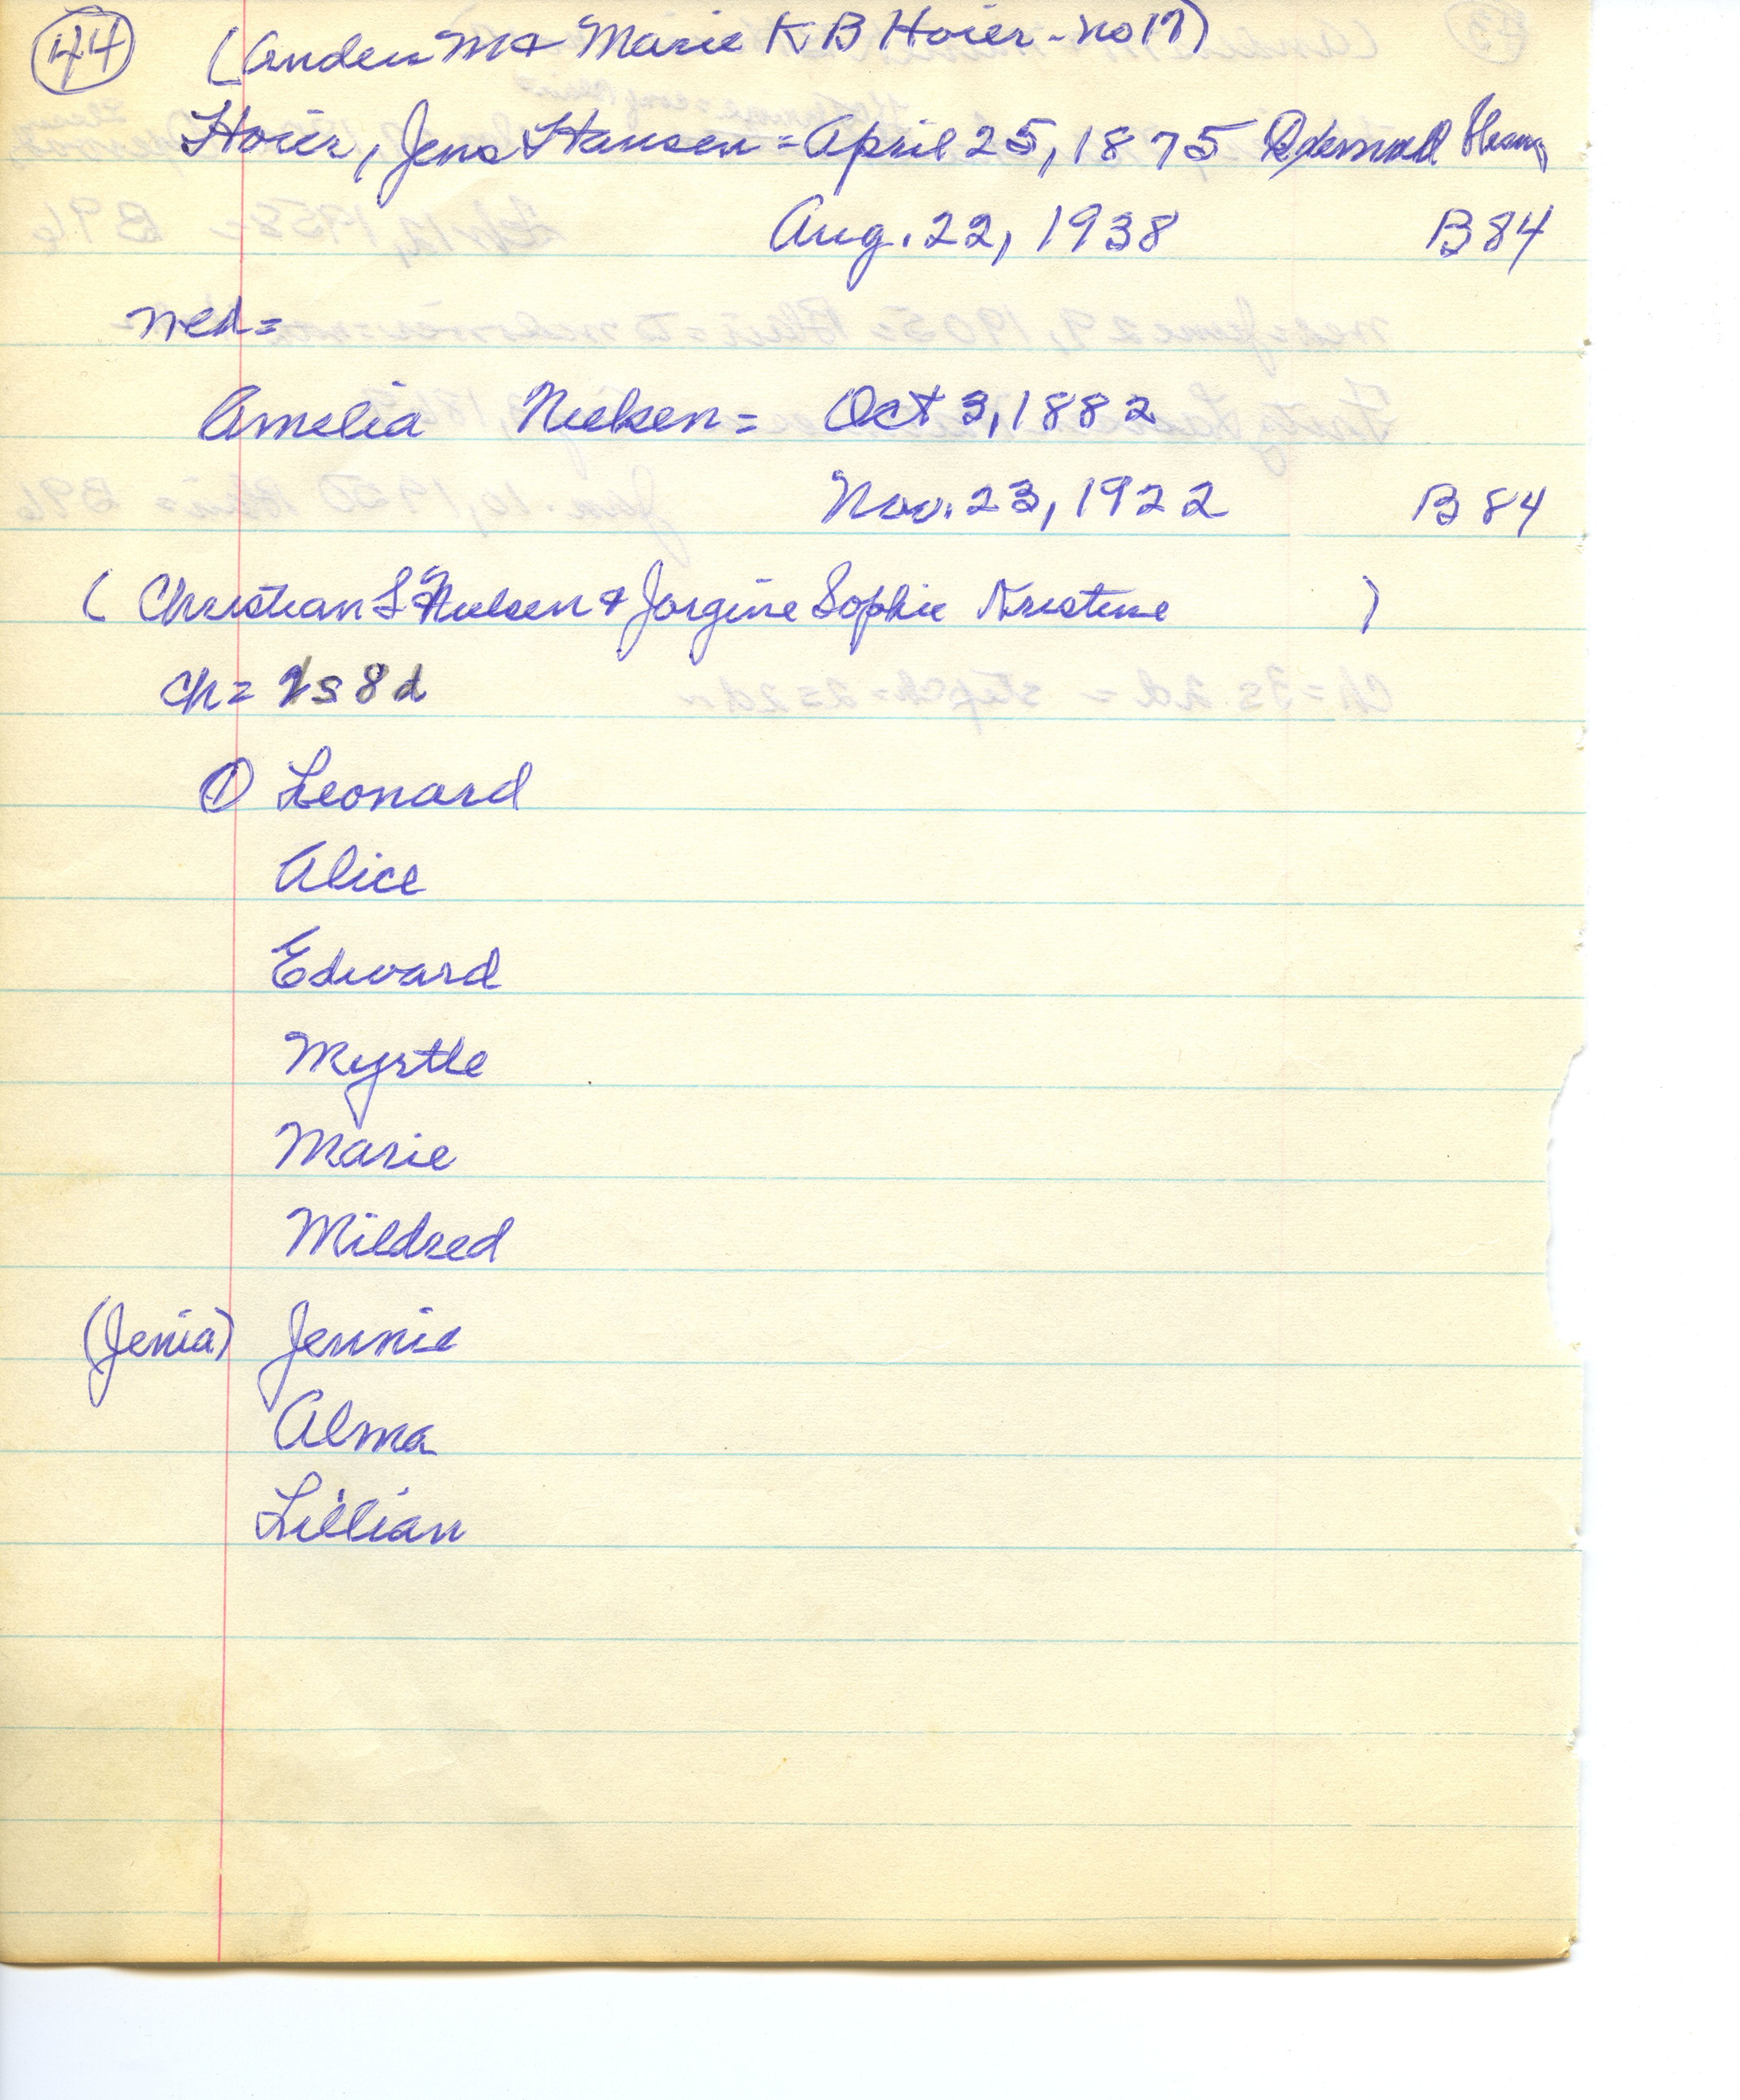 44
(Anders M & Marie K B Hoier - no 17)
Hoier, Jens Hansen = April 25, 1875
Aug. 22, 1938 B84
med =
Amelia Nielsen = Oct 3, 1882
Nov. 23, 1922 B84
(Christian L Nielsen & Jorgine Sophie Kristine )
ch = s 8 d
① Leonard
Alice
Edward
Myrtle
Marie
Mildred
(Jenia) Jennie
Alma
Lillian